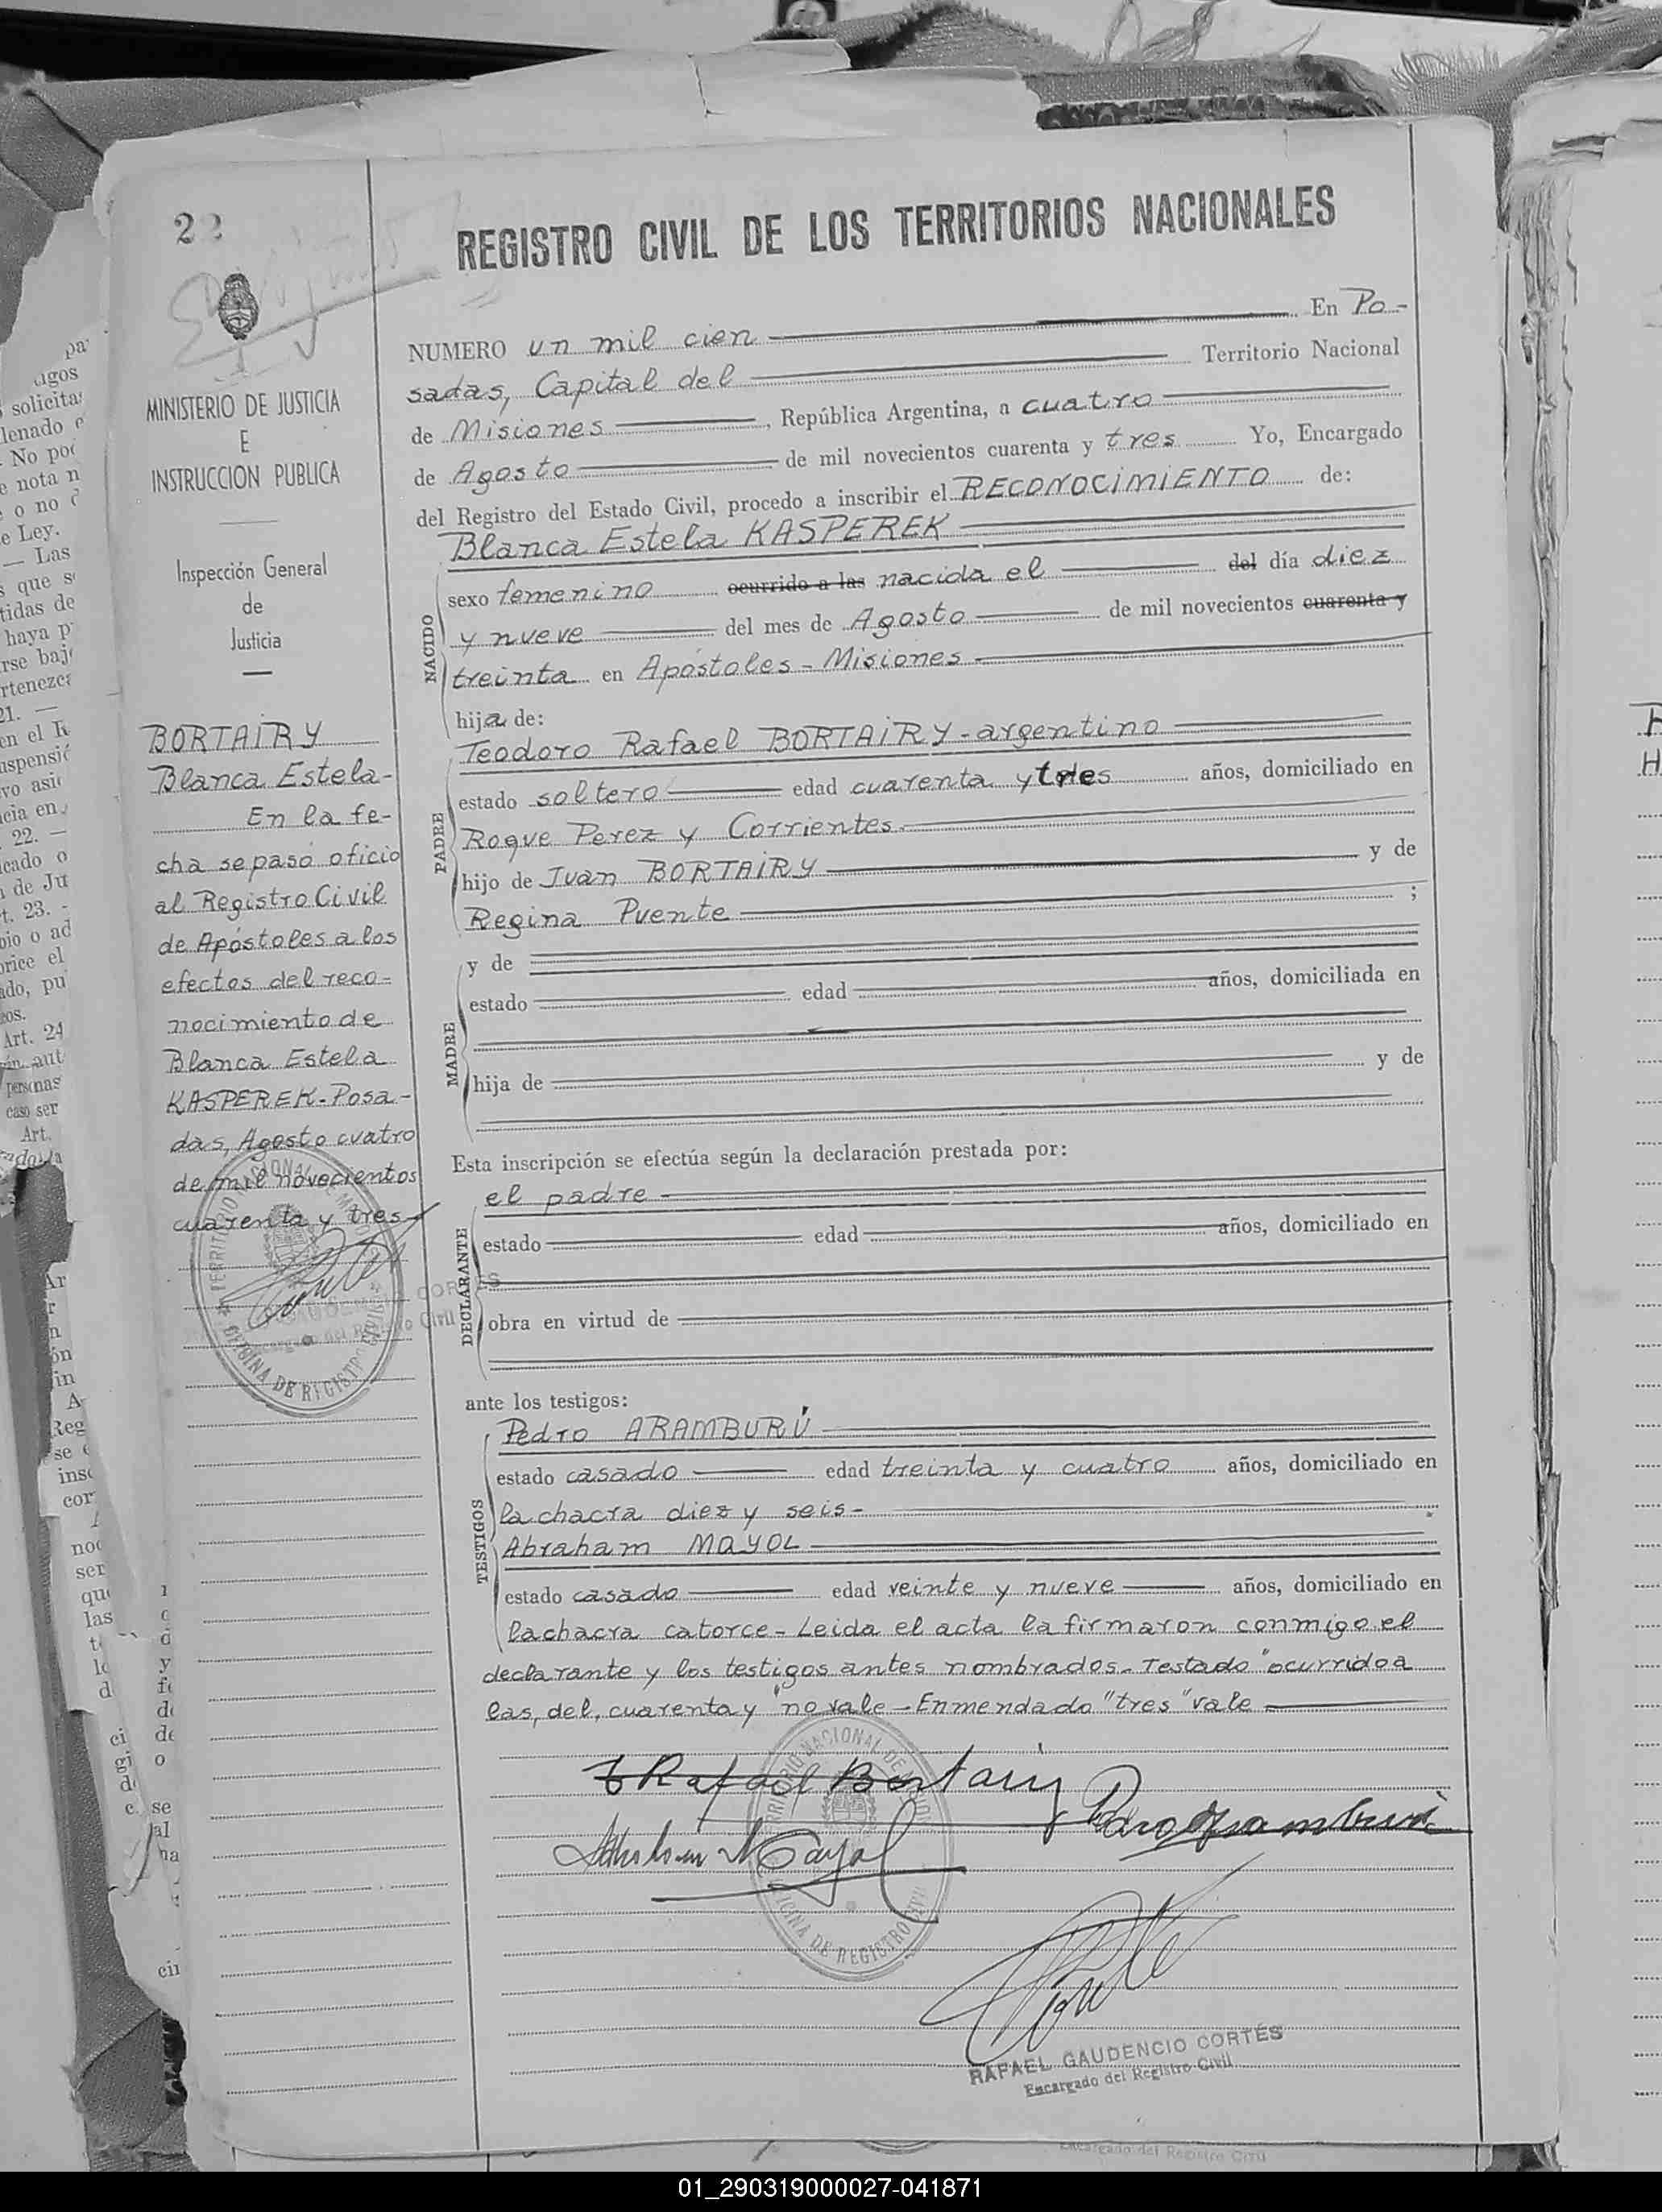 22
MINISTERIO DE JUSTICIA
E
INSTRUCCION PUBLICA
Inspección General
de
Justicia
BORTAIRY
Blanca Estela-
En la fe-
cha se pasó oficio
al Registro Civil
de Apóstoles a los
efectos del reco-
nocimiento de
Blanca Estela
KASPEREK-Posa-
das, Agosto cuatro
de mil novecientos
cuarenta y tres-
REGISTRO CIVIL DE LOS TERRITORIOS NACIONALES
NUMERO un mil cien En Po-
sadas, Capital del Territorio Nacional
de Misiones, República Argentina, a cuatro
de Agosto de mil novecientos cuarenta y tres Yo, Encargado
del Registro del Estado Civil, procedo a inscribir el RECONOCIMIENTO de:
Blanca Estela KASPEREK
NACIDO
sexo femenino ocurrido a las nacida el del día diez
y nueve del mes de Agosto de mil novecientos cuarenta y
treinta en Apóstoles - Misiones -
hija de:
PADRE
Teodoro Rafael BORTAIRY - argentino
estado soltero edad cuarenta y tres años, domiciliado en
Roque Perez y Corrientes.
hijo de Juan BORTAIRY y de
Regina Puente ;
MADRE
y de
estado edad años, domiciliada en
hija de y de
Esta inscripción se efectúa según la declaración prestada por:
DECLARANTE
el padre
estado edad años, domiciliado en
obra en virtud de
ante los testigos:
TESTIGOS
Pedro ARAMBURÚ
estado casado edad treinta y cuatro años, domiciliado en
la chacra diez y seis-
Abraham MAYOL
estado casado edad veinte y nueve años, domiciliado en
la chacra catorce - Leida el acta la firmaron conmigo el
declarante y los testigos antes nombrados. Testado "ocurrido a
las, del, cuarenta y" no vale - Enmendado "tres" vale
T Rafael Bortairy
Pedro Aramburú
Abraham Mayol
TERRITORIO NACIONAL DE MISIONES
OFICINA DE REGISTRO CIVIL
RAFAEL GAUDENCIO CORTÉS
Encargado del Registro Civil
Encargado del Registro Civil
01_290319000027-041871